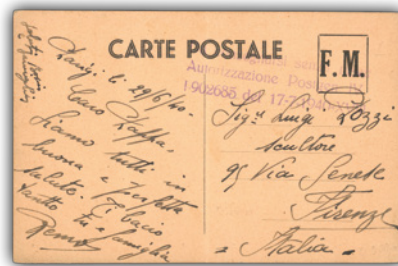 CARTE POSTALE
F.M.
Autorizzazione Postale
1902685 del 17-7-1940
Parigi li 29/6/40.
Caro Kappa,
Siamo tutti in
buona e perfetta
salute. Ti bacio
tanto tu e famiglia
Remo
Sigr Luigi Pozzi
scultore
95 Via Senese
Firenze
- Italia -